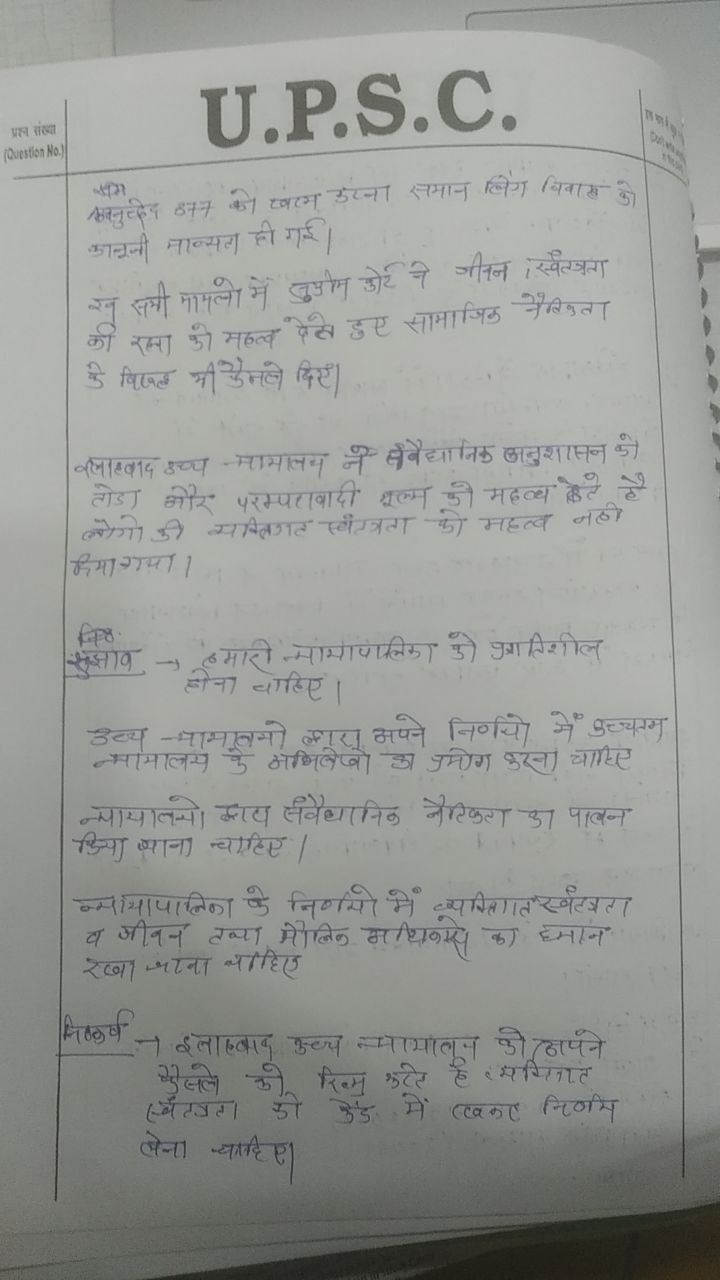 U.P.S.C.
प्रश्न संख्या
(Question No.)
अनुच्छेद 377 को खत्म करना समान लिंग विवाह को
कानूनी मान्यता दी गई।
इन सभी मामलो में सुप्रीम कोर्ट ने जीवन, स्वंतत्रता
की रक्षा को महत्व देते हुए सामाजिक नैतिकता
के विरुद्ध भी फैसले दिए।
इलाहबाद उच्च न्यायालय ने संवैधानिक अनुशासन को
तोडा और परम्परावादी मूल्य को महत्व देते है
लोगो की व्यक्तिगत स्वंतत्रता को महत्व नही
दिया गया।
सुझाव → हमारी न्यायापालिका को प्रगतिशील
होना चाहिए।
उच्च न्यायालयो द्वारा अपने निर्णयो में उच्चतम
न्यायालय के अभिलेखो का प्रयोग करना चाहिए
न्यायालयो द्वारा संवैधानिक नैतिकता का पालन
किया जाना चाहिए।
न्यायापालिका के निर्णयो में व्यक्तिगत स्वंतत्रता
व जीवन तथा मौलिक अधिकारो का ध्यान
रखा जाना चाहिए
निष्कर्ष → इलाहबाद उच्च न्यायालय को अपने
फैसले को रिव्यु करते है व्यक्तिगत
स्वंतत्रता को केंद्र में रखकर निर्णय
लेना चाहिए।